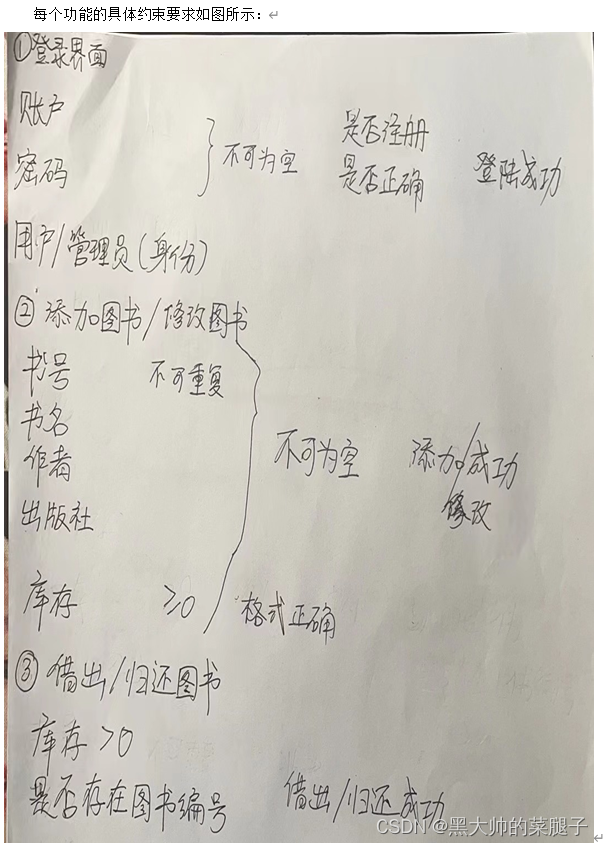 每个功能的具体约束要求如图所示：
①登录界面
账户
密码
不可为空
是否注册
是否正确
登陆成功
用户/管理员(身份)
②添加图书/修改图书
书号 不可重复
书名
作者
出版社
不可为空
添加/成功
修改
库存 ≥0
格式正确
③借出/归还图书
库存>0
是否存在图书编号
借出/归还成功
CSDN @黑大帅的菜腿子